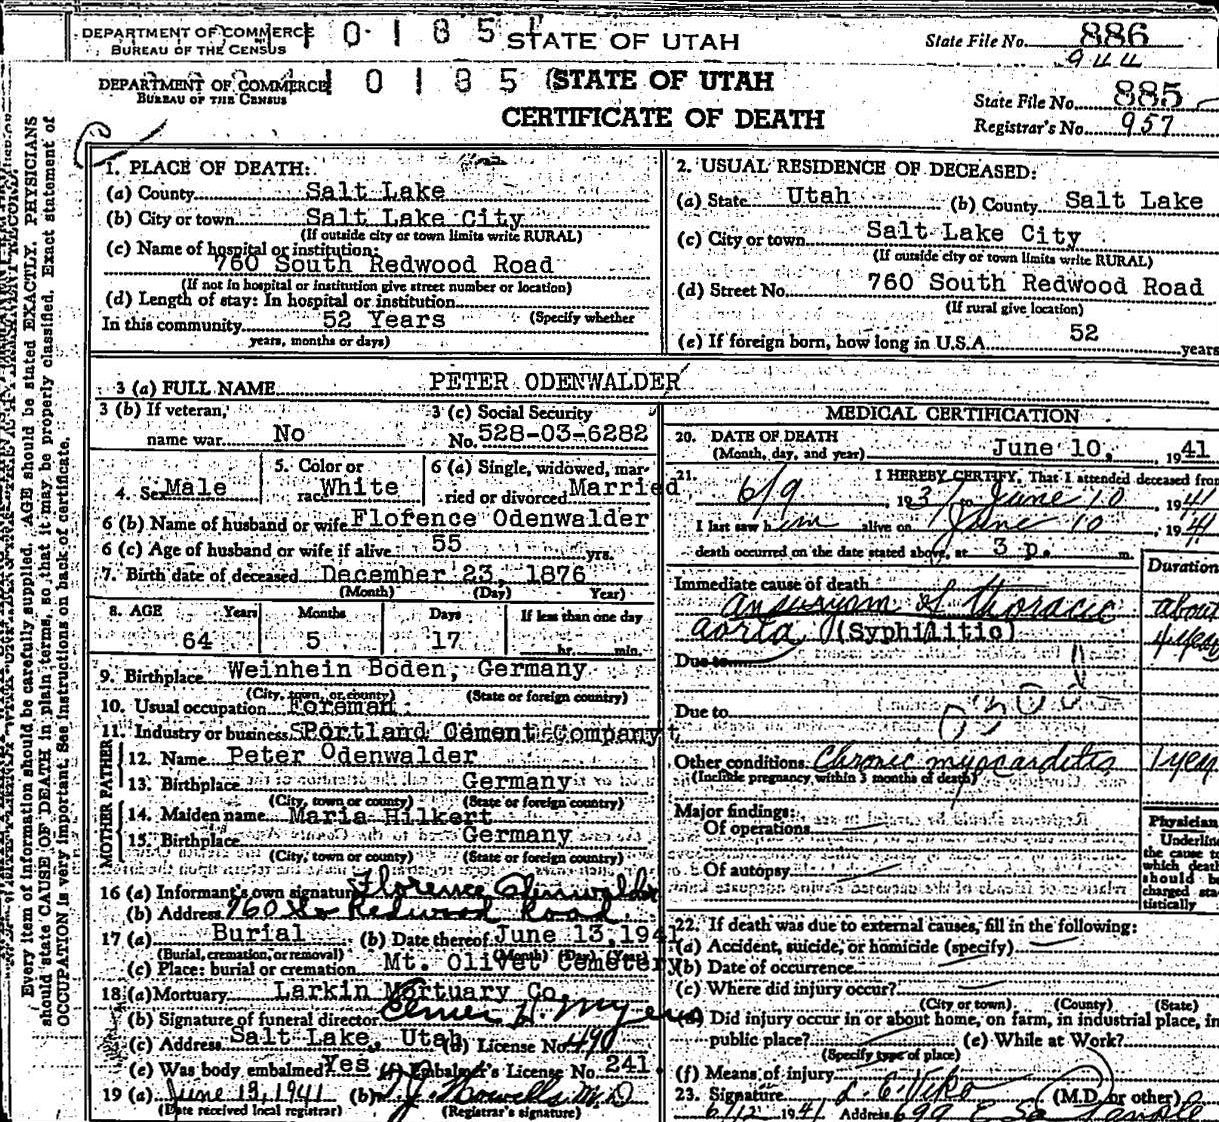 DEPARTMENT OF COMMERCE
BUREAU OF THE CENSUS
STATE OF UTAH
State File No. 886
944
DEPARTMENT OF COMMERCE
BUREAU OF THE CENSUS
STATE OF UTAH
CERTIFICATE OF DEATH
State File No. 885
Registrar's No. 957
Every item of information should be carefully supplied. AGE should be stated EXACTLY. PHYSICIANS
should state CAUSE OF DEATH in plain terms, so that it may be properly classified. Exact statement of
OCCUPATION is very important. See instructions on back of certificate.
1. PLACE OF DEATH:
(a) County Salt Lake
(b) City or town Salt Lake City
(If outside city or town limits write RURAL)
(c) Name of hospital or institution:
760 South Redwood Road
(If not in hospital or institution give street number or location)
(d) Length of stay: In hospital or institution
(Specify whether
In this community 52 Years
years, months or days)
2. USUAL RESIDENCE OF DECEASED:
(a) State Utah (b) County Salt Lake
(c) City or town Salt Lake City
(If outside city or town limits write RURAL)
(d) Street No. 760 South Redwood Road
(If rural give location)
(e) If foreign born, how long in U.S.A. 52 years
3 (a) FULL NAME PETER ODENWALDER
3 (b) If veteran,
name war No
3 (c) Social Security
No. 528-03-6282
4. Sex Male
5. Color or
race White
6 (a) Single, widowed, mar-
ried or divorced Married
6 (b) Name of husband or wife Florence Odenwalder
6 (c) Age of husband or wife if alive 55 yrs.
7. Birth date of deceased December 23, 1876
(Month) (Day) Year)
8. AGE Years Months Days If less than one day
64 5 17 hr. min.
9. Birthplace Weinhein Boden, Germany
(City, town, or county) (State or foreign country)
10. Usual occupation Foreman
11. Industry or business Portland Cement Company
MOTHER FATHER
12. Name Peter Odenwalder
13. Birthplace Germany
(City, town or county) (State or foreign country)
14. Maiden name Maria Hilkert
15. Birthplace Germany
(City, town or county) (State or foreign country)
16 (a) Informant's own signature Florence Odenwalder
(b) Address 760 So Redwood Road
17 (a) Burial (b) Date thereof June 13, 194
(Burial, cremation, or removal) (Month) (Day) (Year)
(c) Place: burial or cremation Mt. Olivet Cemetery
18 (a) Mortuary Larkin Mortuary Co.
(b) Signature of funeral director Elmer H. Myers
(c) Address Salt Lake, Utah (d) License No. 490
(e) Was body embalmed? Yes (f) Embalmer's License No. 241
19 (a) June 13, 1941 (b) M.D.
(Date received local registrar) (Registrar's signature)
MEDICAL CERTIFICATION
20. DATE OF DEATH
(Month, day, and year) June 10, 1941
21. I HEREBY CERTIFY, That I attended deceased from
6/9, 193 to June 10, 1941
I last saw him alive on June 10, 1941
death occurred on the date stated above, at 3 p. m.
Duration
Immediate cause of death
aneurysm of thoracic about
aorta (Syphilitic) 4 years
Due to
Due to
Other conditions Chronic myocarditis 1 year
(Include pregnancy within 3 months of death)
Major findings:
Of operations
Of autopsy
Physician
Underline
the cause to
which death
should be
charged sta-
tistically
22. If death was due to external causes, fill in the following:
(a) Accident, suicide, or homicide (specify)
(b) Date of occurrence
(c) Where did injury occur?
(City or town) (County) (State)
(d) Did injury occur in or about home, on farm, in industrial place, in
public place? (e) While at Work?
(Specify type of place)
(f) Means of injury
23. Signature L. E. Viko (M.D. or other)
6/12 1941 Address 699 E So Temple